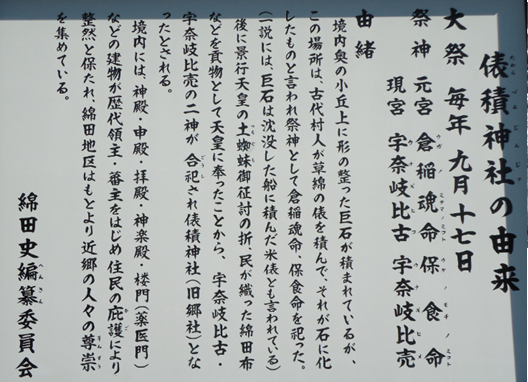 俵積神社の由来
大祭 毎年 九月十七日
祭神 元宮 倉稲魂命 保食命
現宮 宇奈岐比古 宇奈岐比売
由緒
境内奥の小丘上に形の整った巨石が積まれているが、
この場所は、古代村人が草綿の俵を積んで、それが石に化
したものと言われ祭神として倉稲魂命、保食命を祀った。
(一説には、巨石は沈没した船に積んだ米俵とも言われている)
後に景行天皇の土蜘蛛御征討の折、民が織った綿田布
などを貢物として天皇に奉ったことから、宇奈岐比古・
宇奈岐比売の二神が 合祀され俵積神社(旧郷社)とな
ったとされる。
境内には、神殿・申殿・拝殿・神楽殿・楼門(薬医門)
などの建物が歴代領主・藩主をはじめ住民の庇護により
整然と保たれ、綿田地区はもとより近郷の人々の尊崇
を集めている。
綿田史編纂委員会